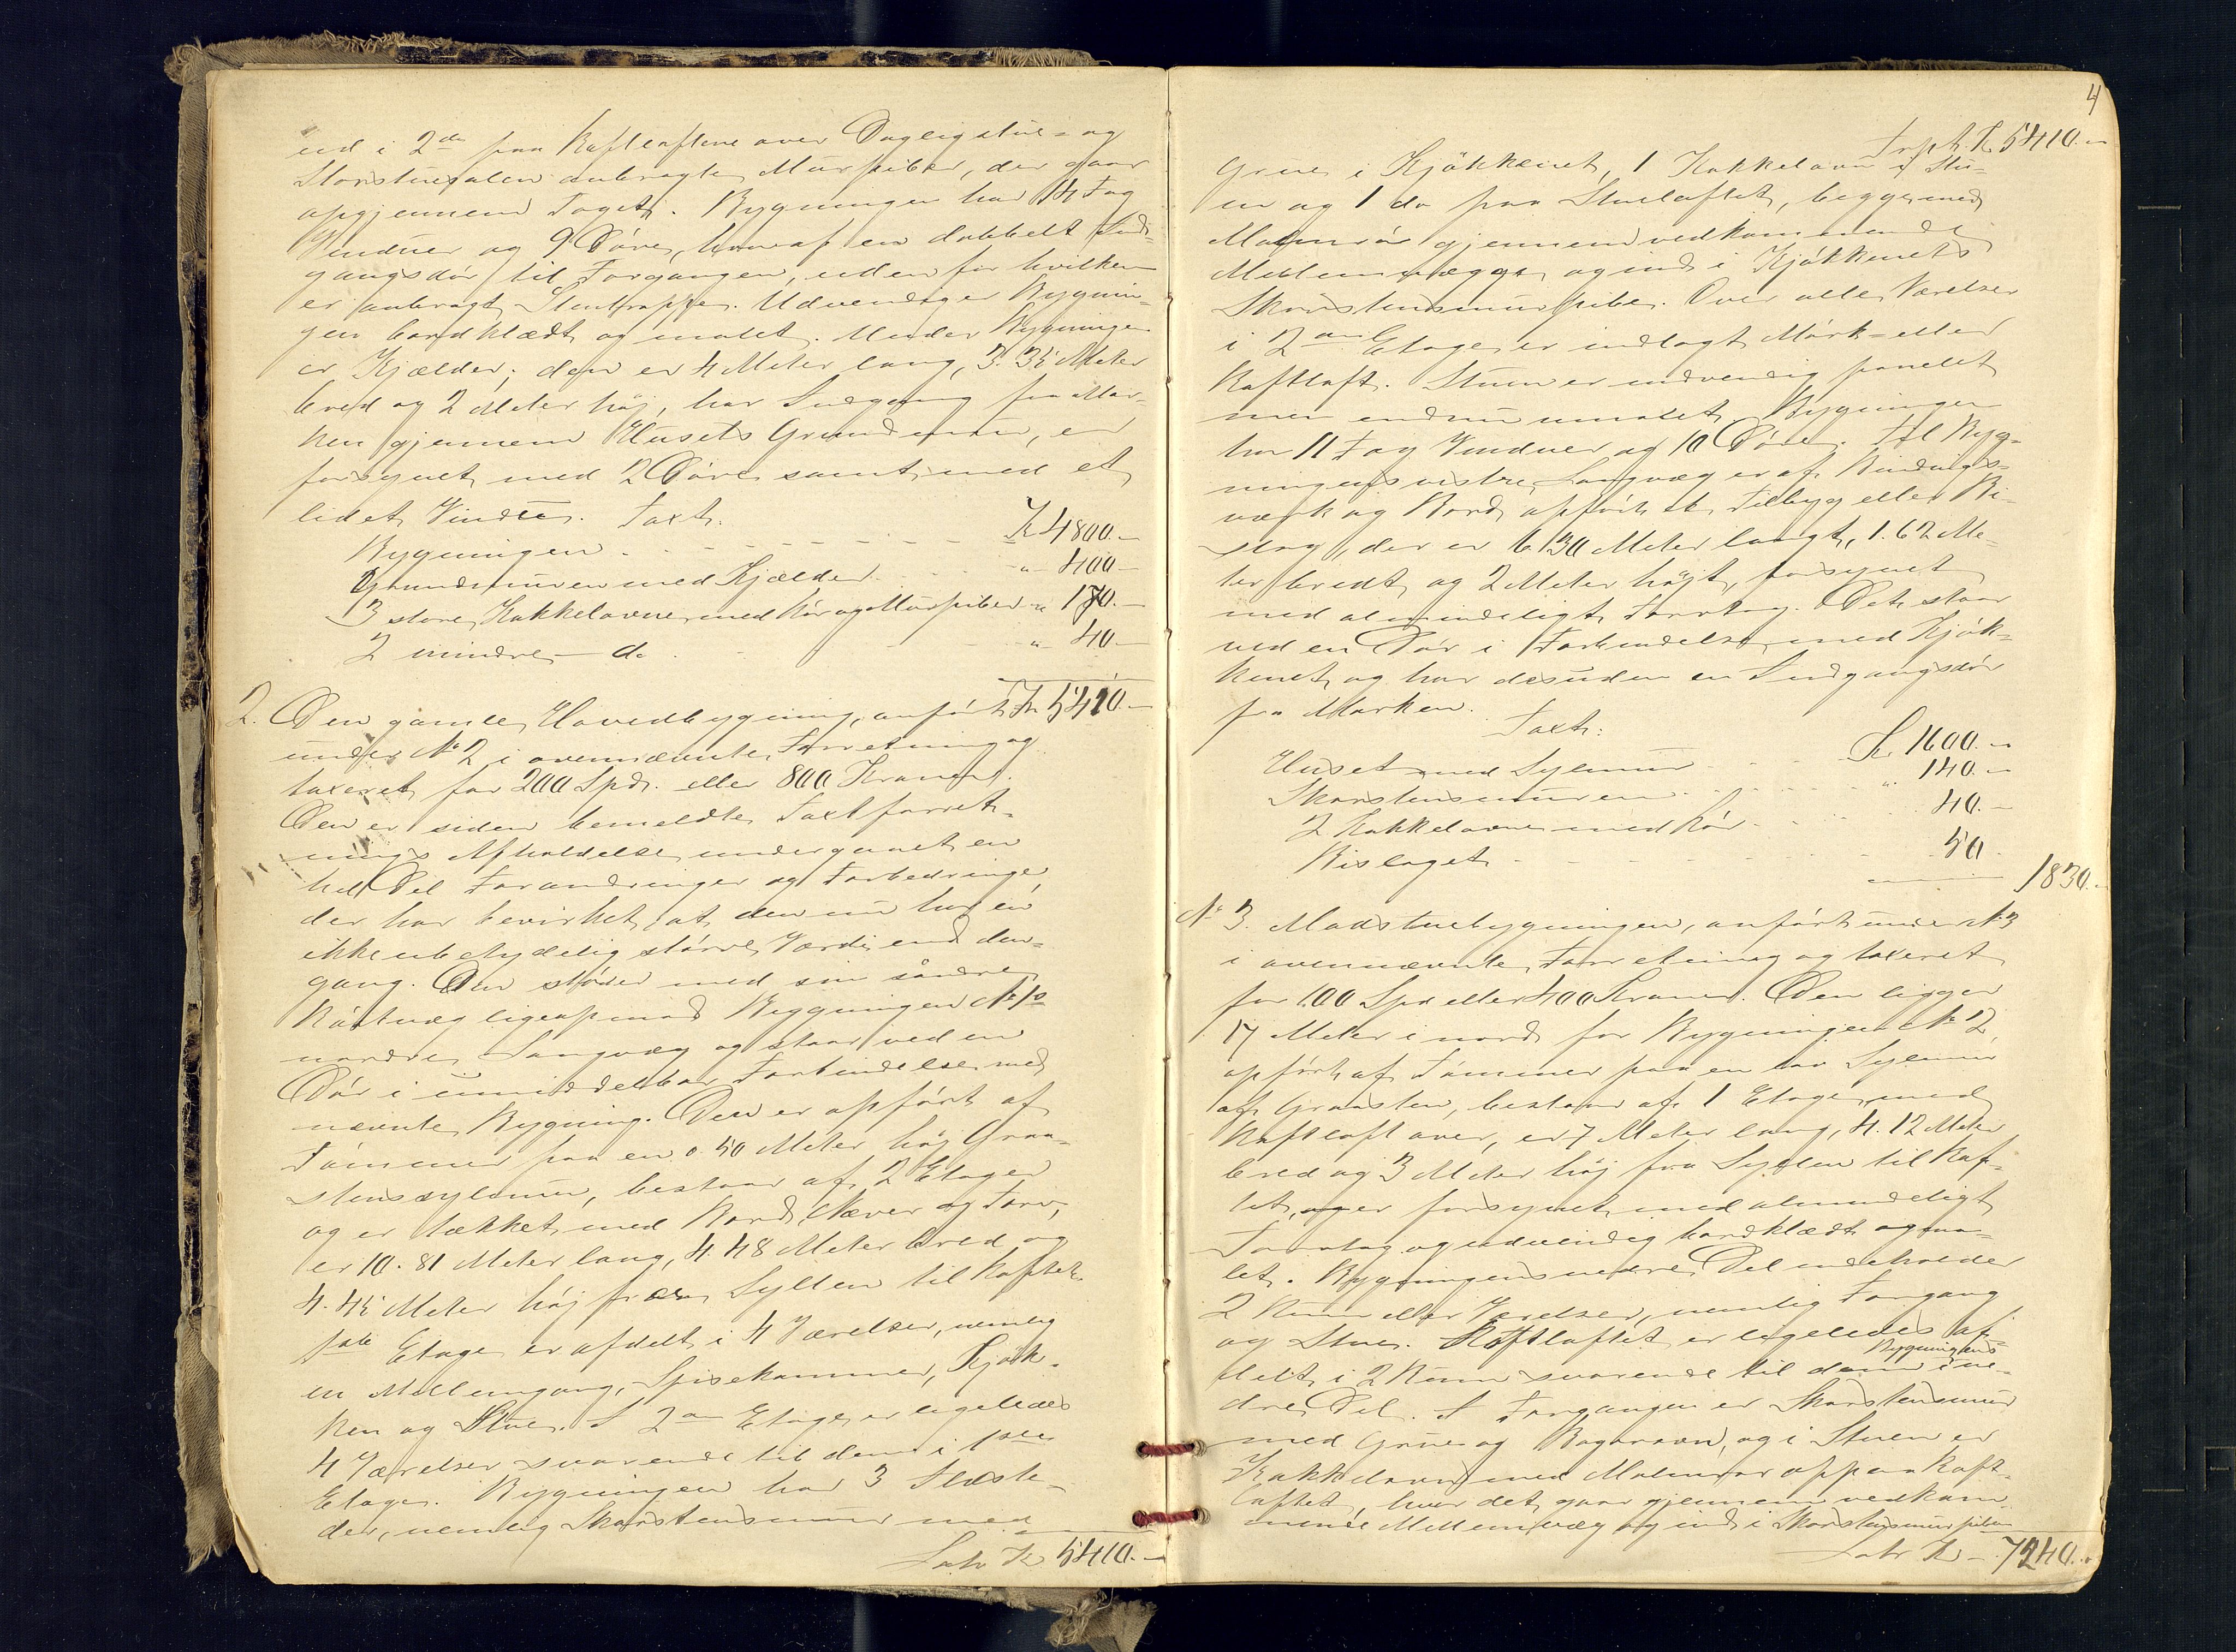 ud i 2de paa Loftloftene over Dagligstue- og
Storstuesalen anbragte Murpiber, der gaar
opgjennem Taget. Bygningen har 14 Fag
Vinduer og 9 Døre, hvoraf en dobbelt Ind-
gangsdør til Forgangen, uden for hvilken
er anbragt Stentrappe. Udvendig er Bygnin-
gen bordklædt og malet. Under Bygningen
er Kjælder; den er 4 Meter lang, 3.35 Meter
bred og 2 Meter høj, har Indgang fra Mar-
ken gjennem Husets Grundmur, er
forsynet med 2 Døre samt med et
lidet Vindue. Taxt.
Bygningen . - - - - - - Kr 4800.-
Grundmuren med Kjælder . . . " 400 -
3 store Kakkelovne med Rør og Murpiber " 170.-
2 mindre - do . . . " 40 -
Kr 5410.-
2. Den gamle Hovedbygning, anført
under No 2 i ovennævnte Forretning og
taxeret for 200 Spd. eller 800 Kroner.
Den er siden bemeldte Taxtforret-
nings Afholdelse undergaaet en
hel Del Forandringer og Forbedringer,
der har bevirket, at den nu har en
ikke ubetydelig større Værdi end den-
gang. Den støder med sin søndre
Røstvæg ligeop mod Bygningen No 1s
nordre Langvæg og staar ved en
Dør i umiddelbar Forbindelse med
nævnte Bygning. Den er opført af
Tømmer paa en 0.50 Meter høj Graa-
stenssylmur, bestaar af 2 Etager
og er tækket med Bord, Næver og Torv,
er 10.81 Meter lang, 4.48 Meter bred og
4.45 Meter høj fra Syllen til Raftet.
1ste Etage er afdelt i 4 Værelser, nemlig
en Mellemgang, Spisekammer, Kjøk-
ken og Stue. I 2den Etage er ligeledes
4 Værelser svarende til dem i 1ste
Etage. Bygningen har 3 Ildste-
der, nemlig Skorstensmur med
Lat. Kr 5410.-
4
Trpt. Kr 5410.-
Grue i Kjøkkenet, 1 Kakkelovn i Stu-
en og 1 do paa Stueloftet, begge med
Malmrør gjennem vedkommende
Mellemvægge og ind i Kjøkkenets
Skorstensmurpibe. Over alle Værelser
i 2den Etage er indlagt Mørk- eller
Loftloft. Stuen er indvendig panelet
men endnu umalet. Bygningen
har 11 Fag Vinduer og 10 Døre. Til Byg-
ningens vestre Langvæg er af Bindings-
værk og Bord opført et Tilbyg eller Bi-
slag, der er 6.30 Meter langt, 1.62 Me-
ter bredt og 2 Meter højt, forsynet
med almindeligt Torvtag. Det staar
ved en Dør i Forbindelse med Kjøk-
kenet, og har desuden en Indgangsdør
fra Marken.
Taxt:
Huset med Sylmur - - - Kr 1600.-
Skorstensmuren . - - - - " 140.-
2 Kakkelovne med Rør - - - 40.-
Bislaget - - - - - 50 -
1830.-
No 3. Madstuebygningen, anført under No 3
i ovennævnte Forretning og taxeret
for 100 Spd eller 400 Kroner. Den ligger
17 Meter i nord for Bygningen No 2,
opført af Tømmer paa en lav Sylmur
af Graasten, bestaar af 1 Etage med
Loftloft over, er 7 Meter lang, 4.12 Meter
bred og 3 Meter høj fra Syllen til Raf-
tet, og er forsynet med almindeligt
Torvtag og udvendig bordklædt og ma-
let. Bygningens nedre Del indeholder
2 Rum eller Værelser, nemlig Forgang
og Stue. Loftloftet er ligeledes af-
delt i 2 Rum svarende til dem i Bygningens ne-
dre Del. I Forgangen er Skorstensmur
med Grue og Bagerovn, og i Stuen er
Kakkelovn med Malmrør op paa Loft-
loftet, hvor det gaar gjennem vedkom-
mende Mellemvæg og ind i Skorstensmurpiben
Lat. Kr - 7240.-